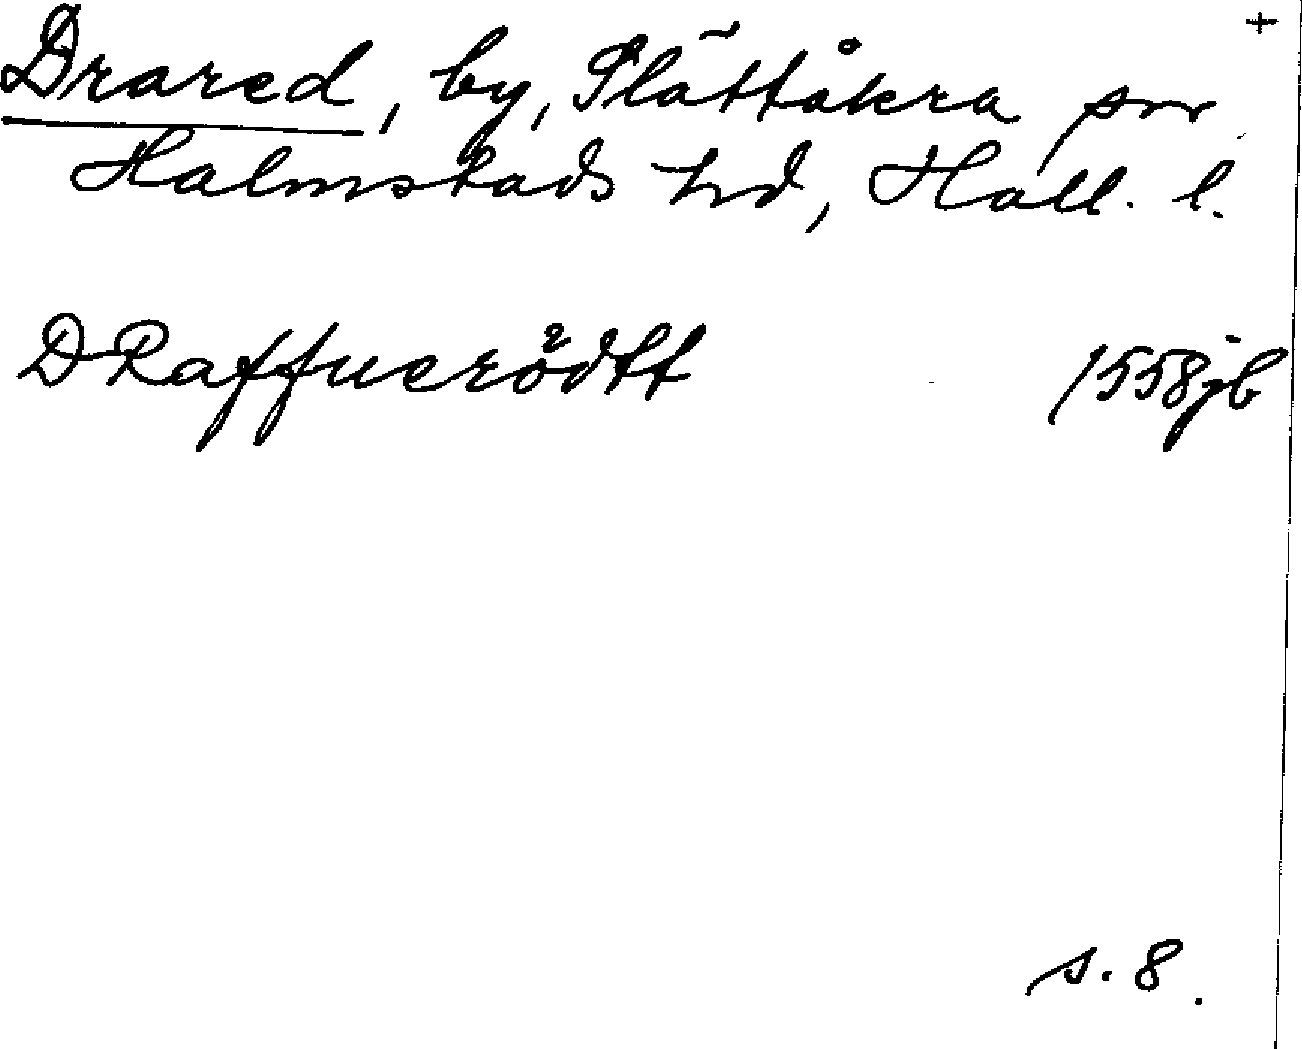 +
Drared, by, Slättåkra sn
Halmstads hd, Hall. l.
DRaffuerödtt 1558jb
s. 8.